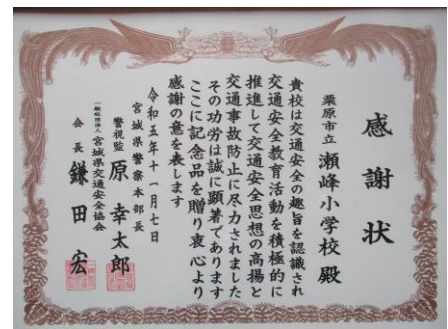 感謝状
栗原市立 瀬峰小学校 殿
貴校は交通安全の趣旨を認識され
交通安全教育活動を積極的に
推進して交通安全思想の高揚と
交通事故防止に尽力されました
その功労は誠に顕著であります
ここに記念品を贈り衷心より
感謝の意を表します
令和五年十一月七日
宮城県警察本部長
警視監 原 幸太郎
一般社団法人 宮城県交通安全協会
会長 鎌田 宏